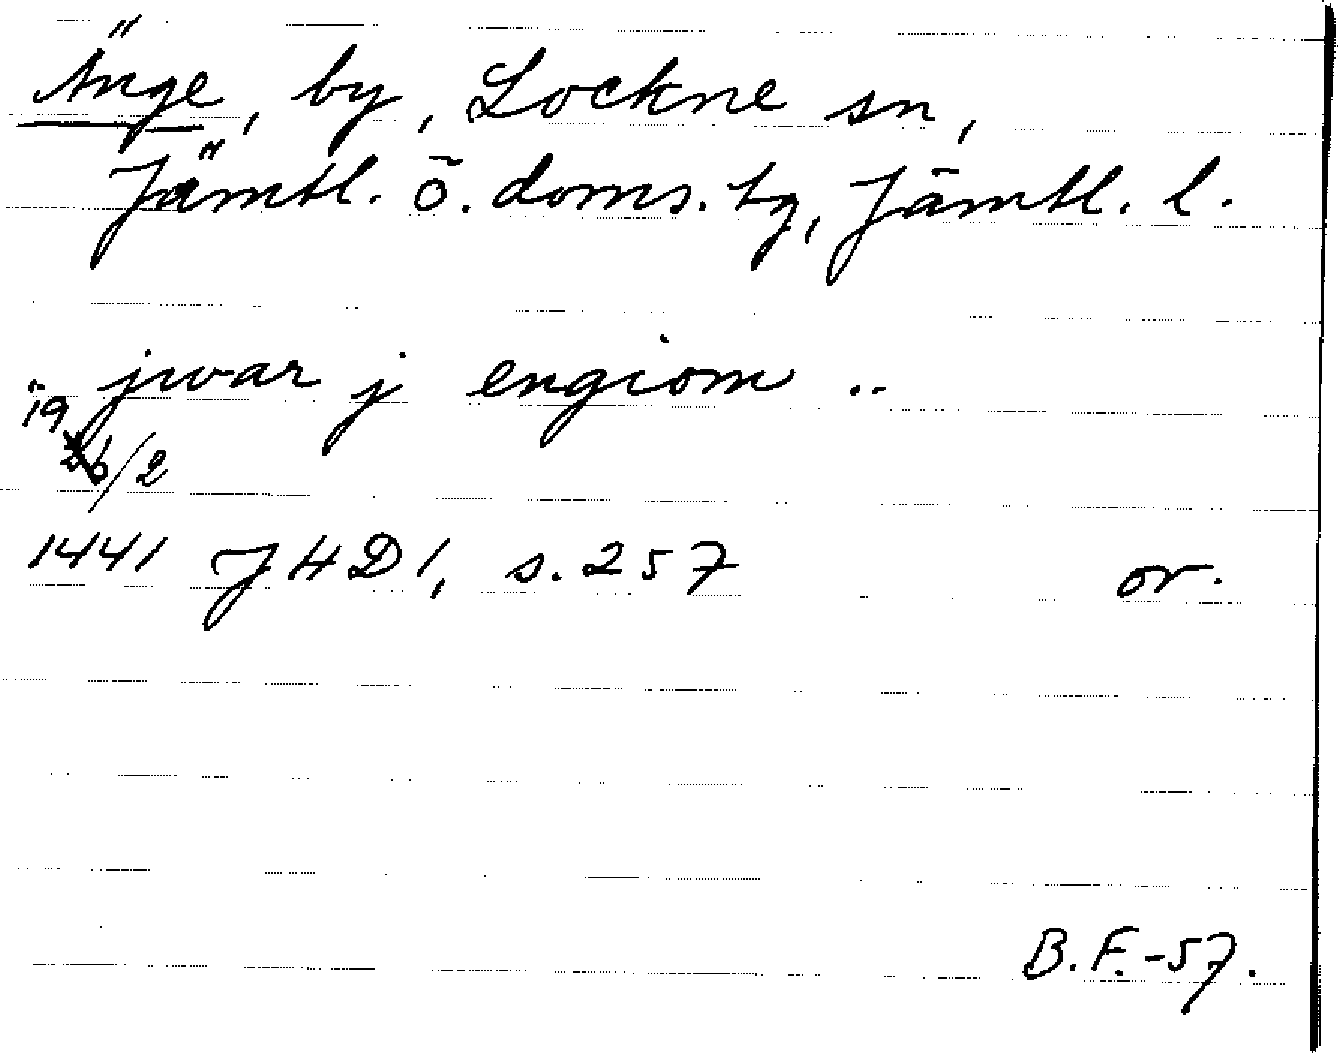 Änge, by, Lockne sn,
Jämtl. ö. doms. tg, Jämtl. l.
jwar j engiom ..
19
26/2
1441 JHD 1, s. 257 or.
B.F.-57.